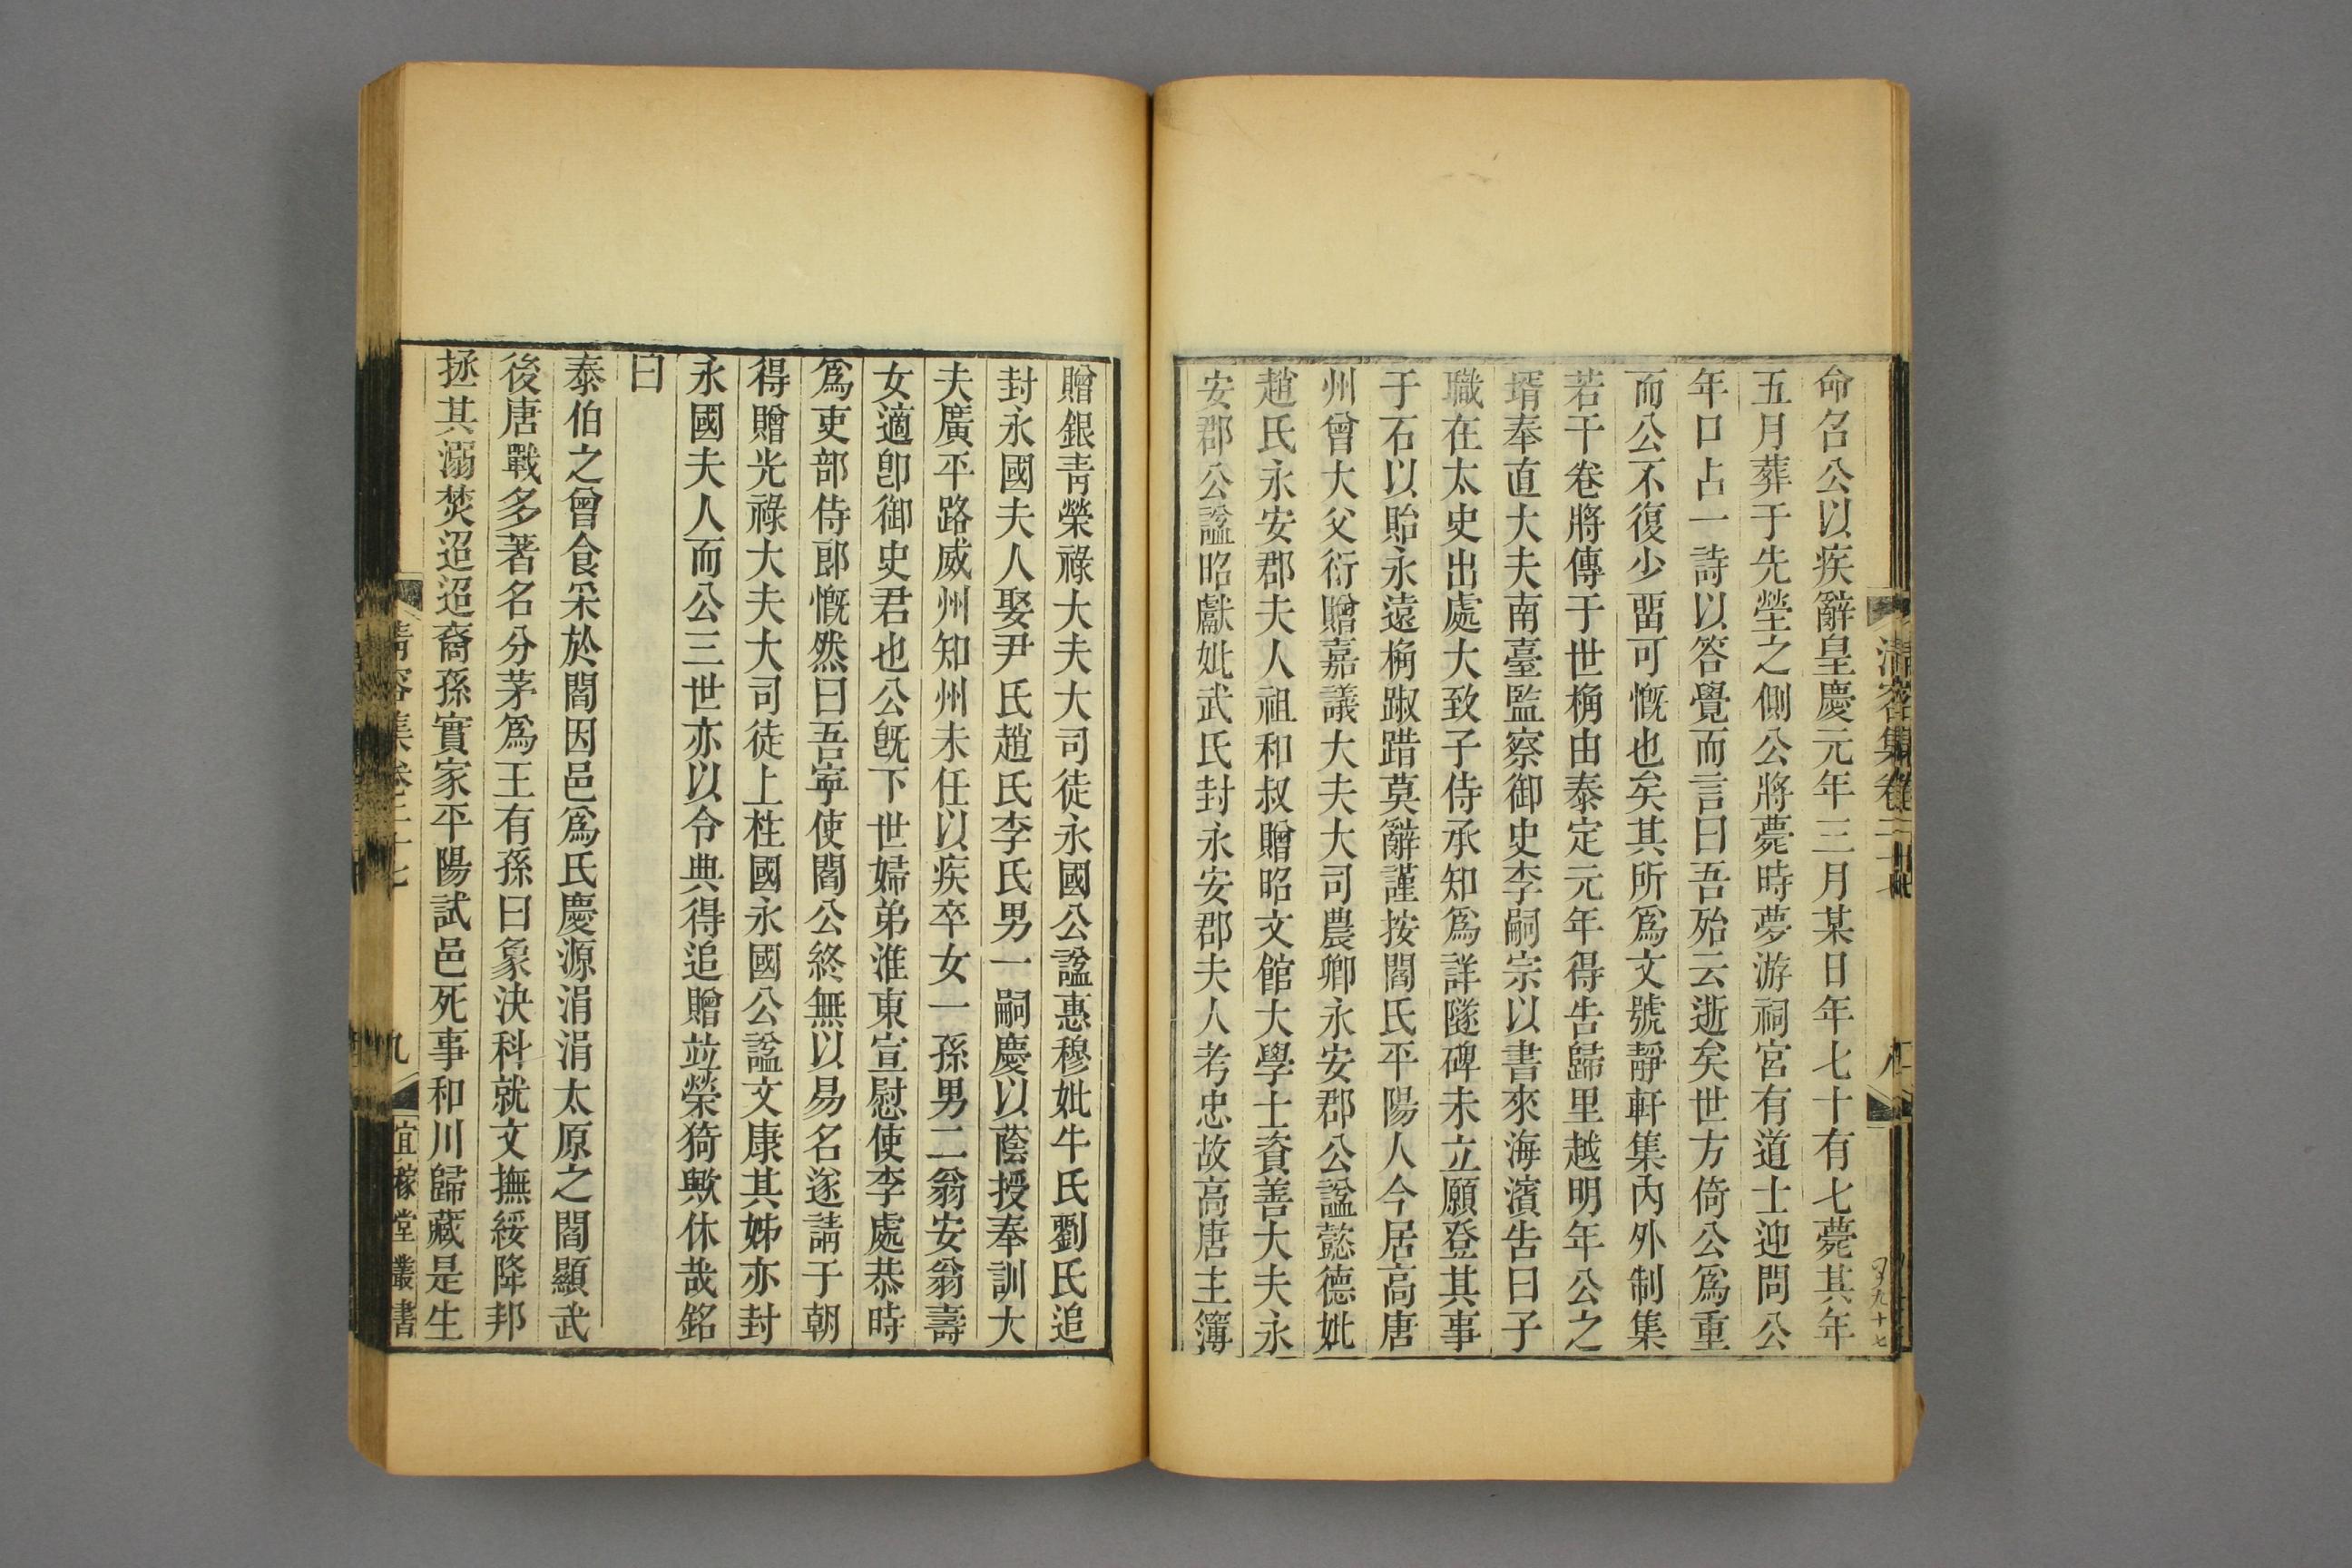 命名公以疾辭皇慶元年三月某日年七十有七薨其年
五月葬于先塋之側公將薨時夢游祠宮有道士迎問公
年口占一詩以答覺而言曰吾殆云逝矣世方倚公爲重
而公不復少畱可慨也矣其所爲文號靜軒集內外制集
若干卷將傳于世桷由泰定元年得告歸里越明年公之
壻奉直大夫南臺監察御史李嗣宗以書來海濱告曰子
職在太史出處大致子侍承知爲詳隧碑未立願登其事
于石以貽永遠桷踧踖莫辭謹按閻氏平陽人今居高唐
州曾大父衍贈嘉議大夫大司農卿永安郡公諡懿德妣
趙氏永安郡夫人祖和叔贈昭文館大學士資善大夫永
安郡公諡昭獻妣武氏封永安郡夫人考忠故高唐主簿
清容集卷二十七
八
贈銀靑榮祿大夫大司徒永國公諡惠穆妣牛氏劉氏追
封永國夫人娶尹氏趙氏李氏男一嗣慶以蔭授奉訓大
夫廣平路威州知州未任以疾卒女一孫男二翁安翁壽
女適卽御史君也公旣下世婦弟淮東宣慰使李處恭時
爲吏部侍郎慨然曰吾寧使閻公終無以易名遂請于朝
得贈光祿大夫大司徒上柱國永國公諡文康其姊亦封
永國夫人而公三世亦以令典得追贈竝榮猗歟休哉銘
曰
泰伯之曾食采於閻因邑爲氏慶源涓涓太原之閻顯武
後唐戰多著名分茅爲王有孫曰象決科就文撫綏降邦
拯其溺焚迢迢裔孫實家平陽試邑死事和川歸藏是生
清容集卷二十七
九
宜稼堂叢書